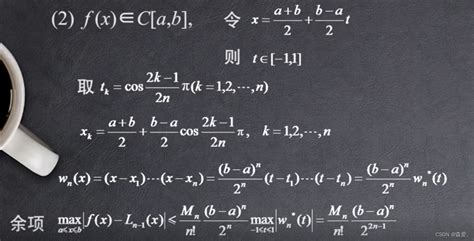 (2) f(x)∈C[a,b], 令 x = \frac{a+b}{2} + \frac{b-a}{2}t
则 t∈[-1,1]
取 t_k = cos\frac{2k-1}{2n}π(k=1,2,⋯,n)
x_k = \frac{a+b}{2} + \frac{b-a}{2}cos\frac{2k-1}{2n}π, k=1,2,⋯,n
w_n(x) = (x-x_1)⋯(x-x_n) = \frac{(b-a)^n}{2^n}(t-t_1)⋯(t-t_n) = \frac{(b-a)^n}{2^n}w_n^*(t)
余项 \max_{a≤x≤b}|f(x)-L_{n-1}(x)| ≤ \frac{M_n}{n!}\frac{(b-a)^n}{2^n}\max_{-1≤t≤1}|w_n^*(t)| = \frac{M_n}{n!}\frac{(b-a)^n}{2^{2n-1}}